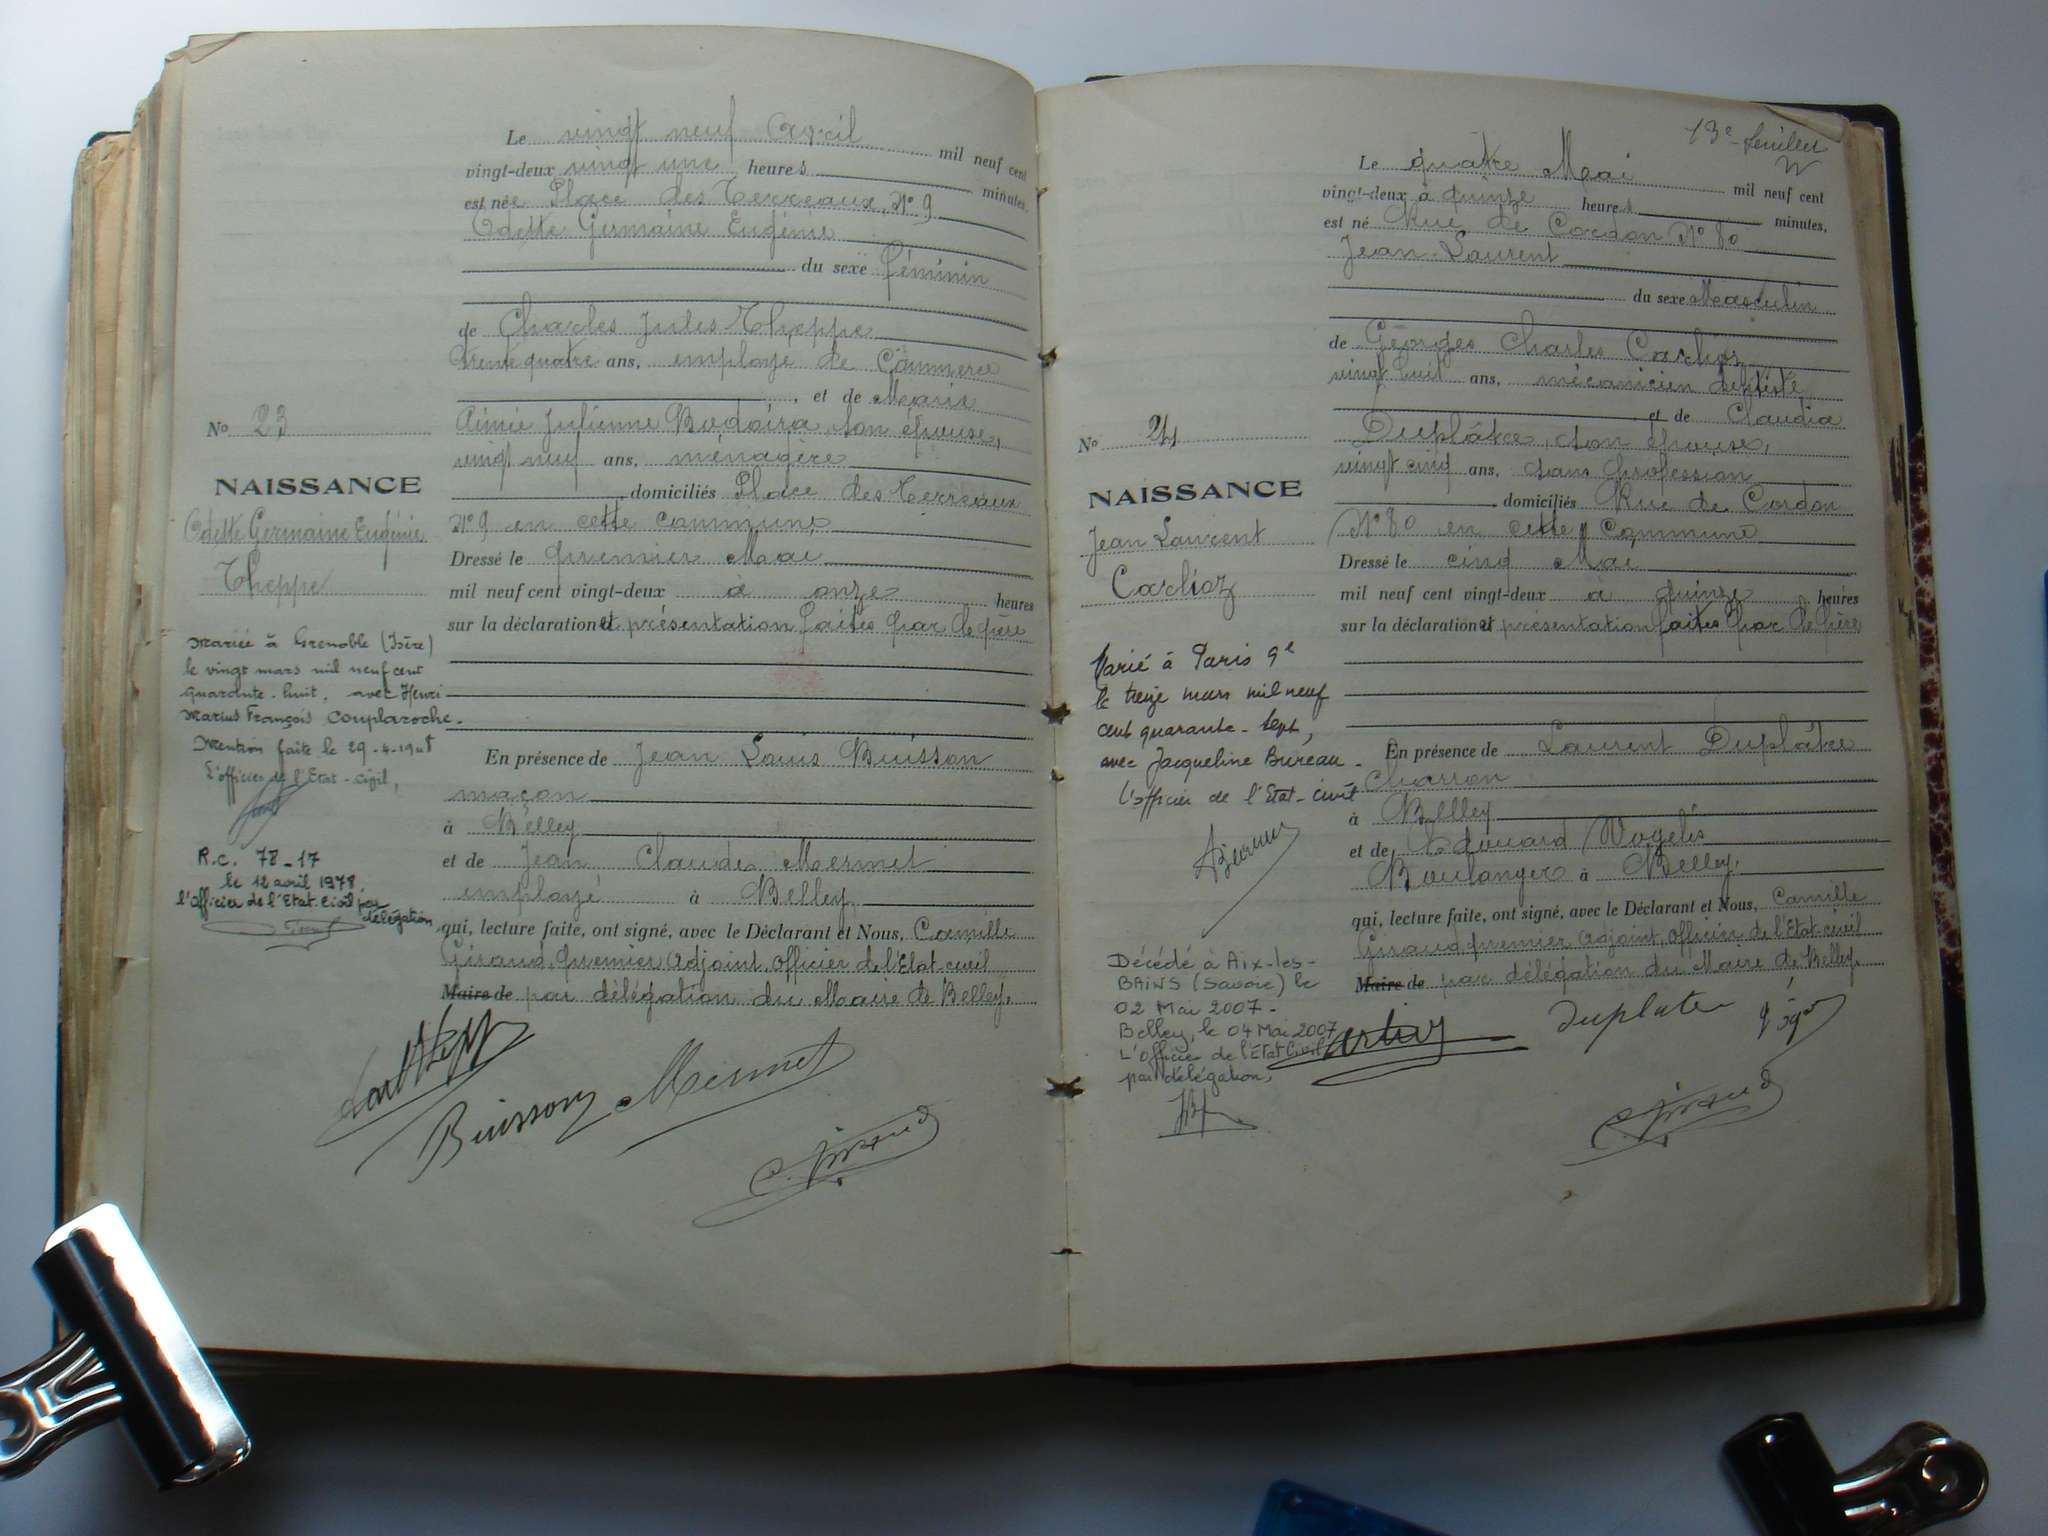 Le vingt neuf Avril mil neuf cent
vingt-deux vingt une heures minutes,
est née Place des Terreaux, N° 9
Odette Germaine Eugénie
du sexe féminin
de Charles Jules Theppe
trente quatre ans, employé de Commerce
, et de Marie
Aimée Julienne son épouse,
vingt neuf ans, ménagère
, domiciliés Place des Terreaux
N° 9 en cette commune
Dressé le premier Mai
mil neuf cent vingt-deux à onze heures
sur la déclaration et présentation faites par le père
En présence de Jean Louis Buisson
maçon
à Belley
et de Jean Claude Mermet
employé à Belley,
qui, lecture faite, ont signé, avec le Déclarant et Nous, Camille
Giraud, premier Adjoint, Officier de l'Etat-civil
Maire de par délégation du Maire de Belley,
N° 23
NAISSANCE
Odette Germaine Eugénie
Theppe
Mariée à Grenoble (Isère)
le vingt mars mil neuf cent
quarante-huit, avec Henri
Marius François Couplaroche.
Mention faite le 29-4-1948
L'officier de l'Etat-civil,
R.C. 78-17
le 12 avril 1978,
l'Officier de l'Etat-Civil par
délégation,
Buisson Mermet
C. Giraud
13e feuillet
Le quatre Mai mil neuf cent
vingt-deux à quinze heures minutes,
est né Rue de Cordon N° 80
Jean-Laurent
du sexe Masculin
de Georges Charles Carlioz
vingt huit ans, mécanicien dentiste
et de Claudia
Duplâtre, son épouse,
vingt cinq ans, sans profession
, domiciliés Rue de Cordon
N° 80 en cette Commune
Dressé le cinq Mai
mil neuf cent vingt-deux à quinze heures
sur la déclaration et présentation faites par le père
En présence de Laurent Duplâtre
charron
à Belley
et de Edouard
Boulanger à Belley,
qui, lecture faite, ont signé, avec le Déclarant et Nous, Camille
Giraud, premier Adjoint, Officier de l'Etat-civil
Maire de par délégation du Maire de Belley,
N° 24
NAISSANCE
Jean Laurent
Carlioz
Marié à Paris 9e
le treize mars mil neuf
cent quarante-sept,
avec Jacqueline Bureau.
L'officier de l'Etat-civil
Décédé à Aix-les-
BAINS (Savoie) le
02 Mai 2007-
Belley, le 04 Mai 2007
L'Officier de l'Etat Civil
par délégation,
Duplatre
C. Giraud